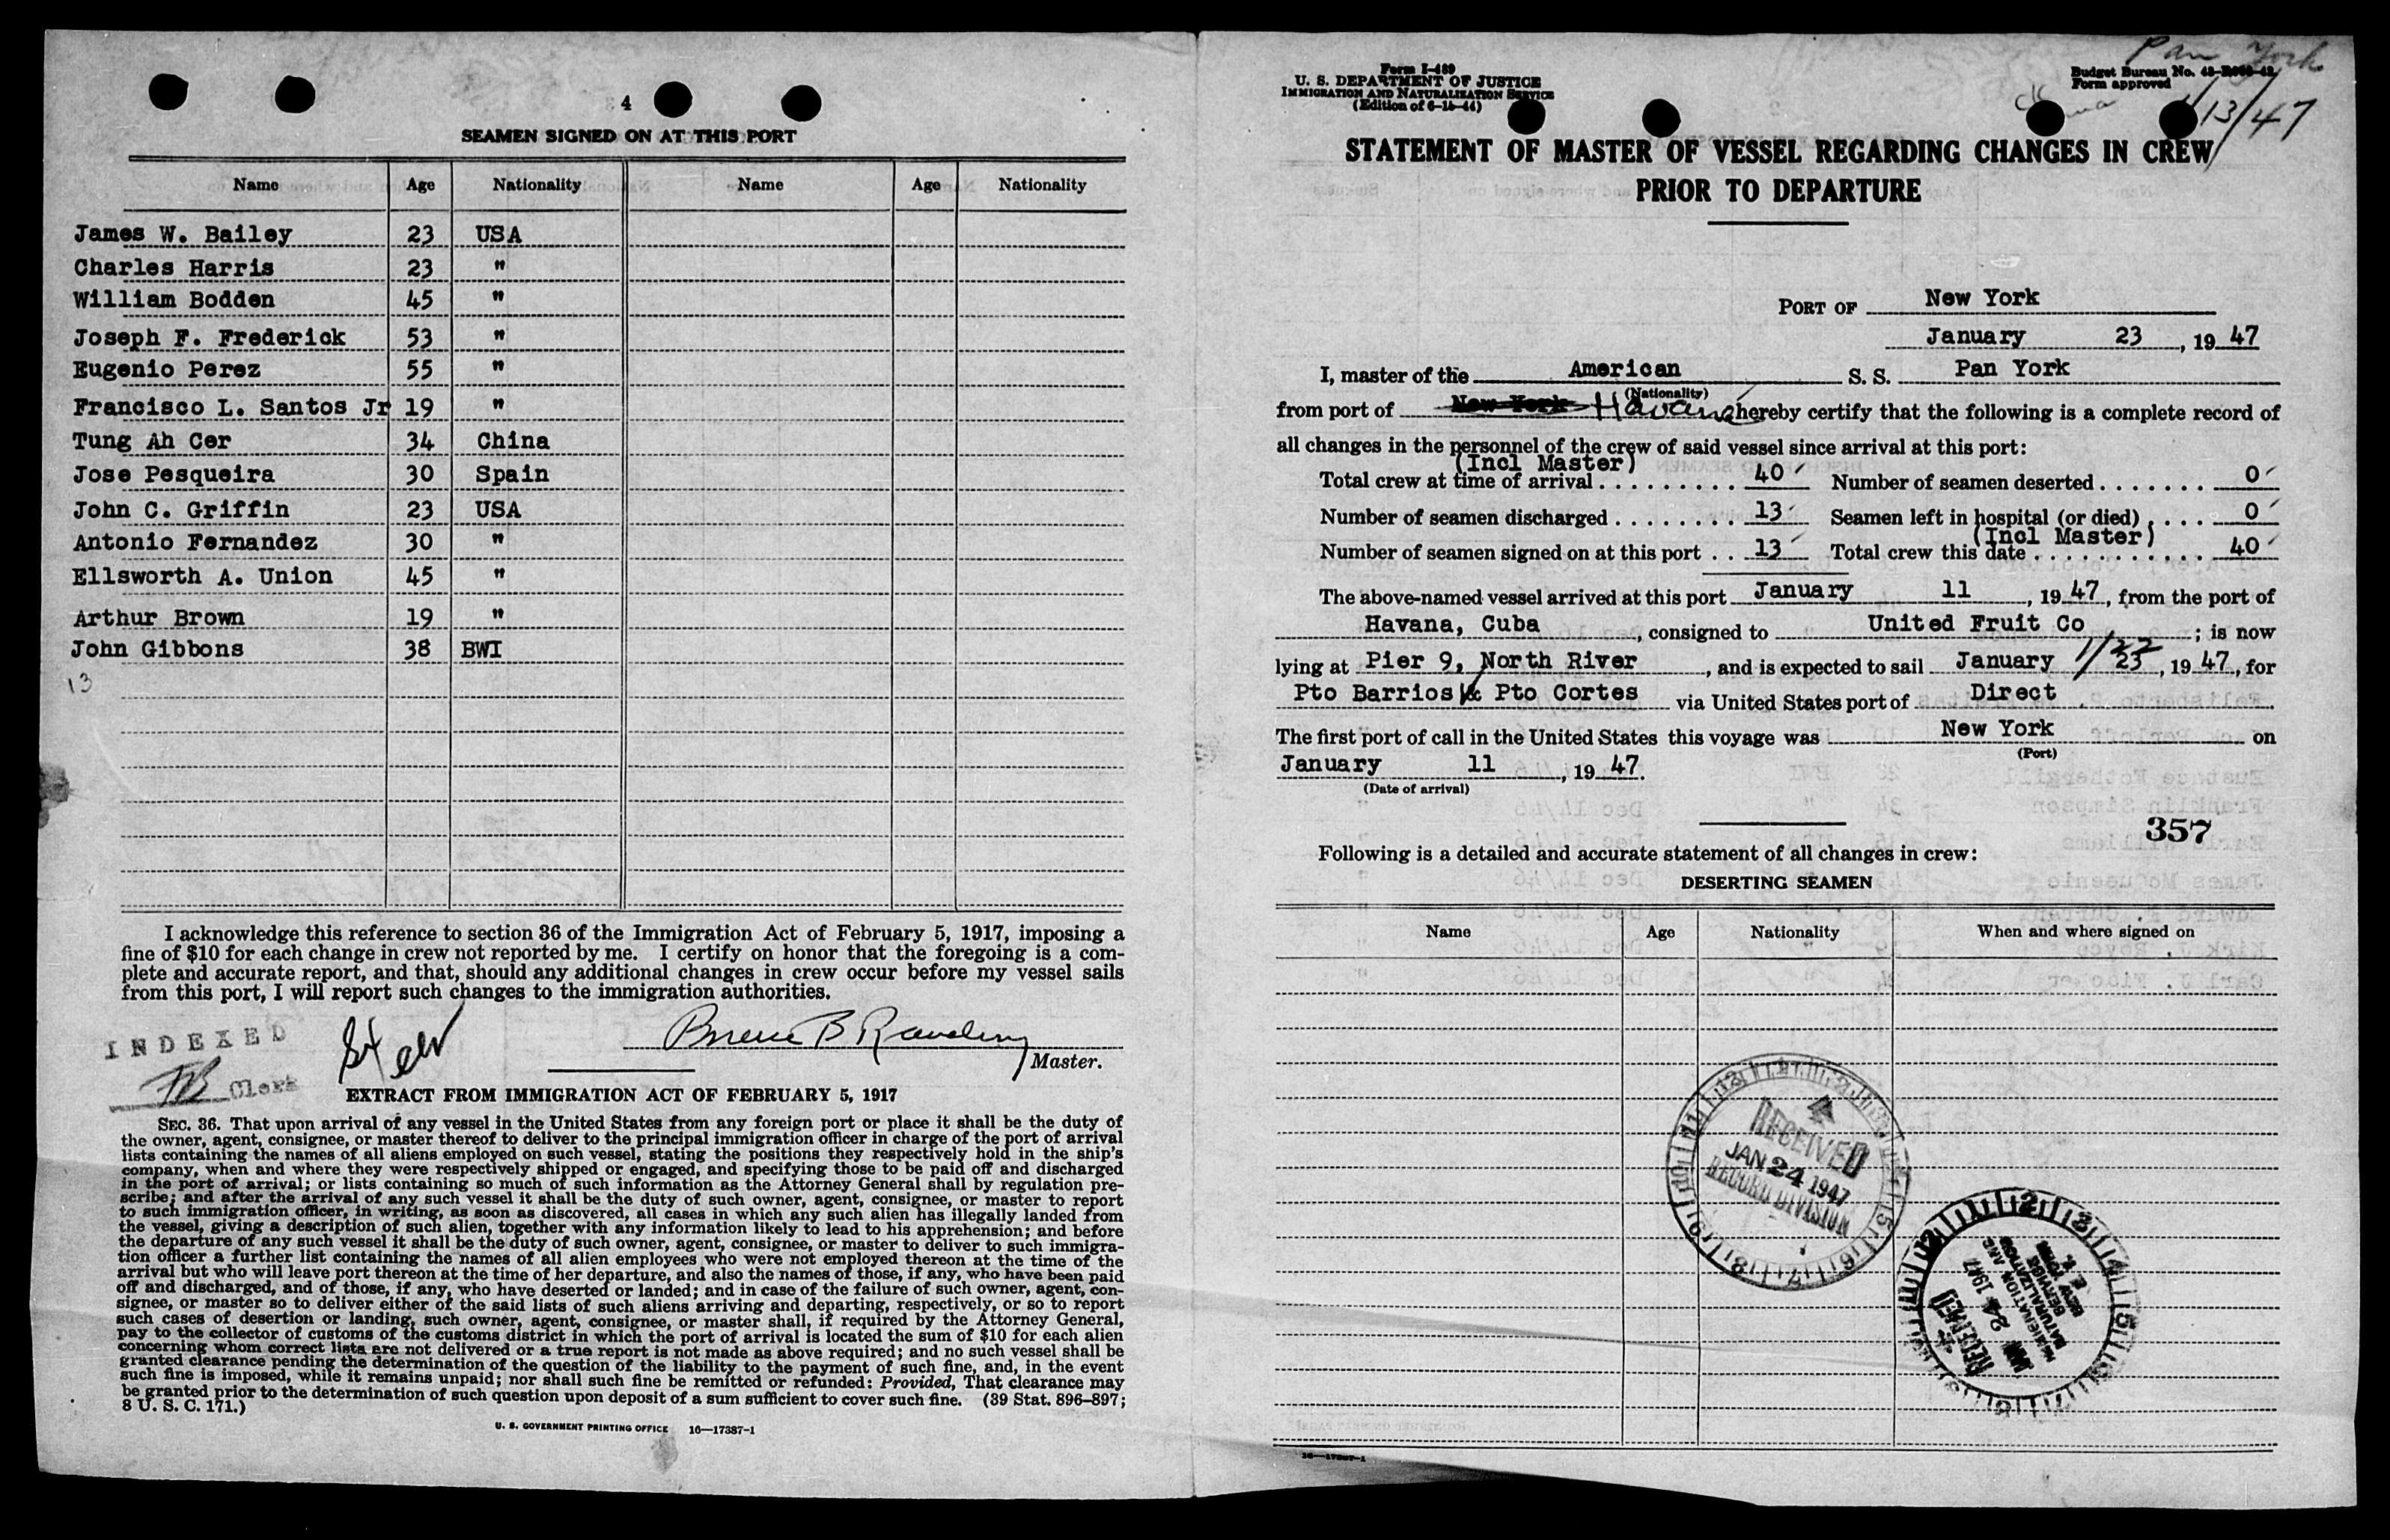 4
SEAMEN SIGNED ON AT THIS PORT
Name Age Nationality Name Age Nationality
James W. Bailey 23 USA
Charles Harris 23 "
William Bodden 45 "
Joseph F. Frederick 53 "
Eugenio Perez 55 "
Francisco L. Santos Jr 19 "
Tung Ah Cer 34 China
Jose Pesqueira 30 Spain
John C. Griffin 23 USA
Antonio Fernandez 30 "
Ellsworth A. Union 45 "
Arthur Brown 19 "
John Gibbons 38 BWI
13
I acknowledge this reference to section 36 of the Immigration Act of February 5, 1917, imposing a
fine of $10 for each change in crew not reported by me. I certify on honor that the foregoing is a com-
plete and accurate report, and that, should any additional changes in crew occur before my vessel sails
from this port, I will report such changes to the immigration authorities.
INDEXED
Clerk
Master.
EXTRACT FROM IMMIGRATION ACT OF FEBRUARY 5, 1917
SEC. 36. That upon arrival of any vessel in the United States from any foreign port or place it shall be the duty of
the owner, agent, consignee, or master thereof to deliver to the principal immigration officer in charge of the port of arrival
lists containing the names of all aliens employed on such vessel, stating the positions they respectively hold in the ship's
company, when and where they were respectively shipped or engaged, and specifying those to be paid off and discharged
in the port of arrival; or lists containing so much of such information as the Attorney General shall by regulation pre-
scribe; and after the arrival of any such vessel it shall be the duty of such owner, agent, consignee, or master to report
to such immigration officer, in writing, as soon as discovered, all cases in which any such alien has illegally landed from
the vessel, giving a description of such alien, together with any information likely to lead to his apprehension; and before
the departure of any such vessel it shall be the duty of such owner, agent, consignee, or master to deliver to such immigra-
tion officer a further list containing the names of all alien employees who were not employed thereon at the time of the
arrival but who will leave port thereon at the time of her departure, and also the names of those, if any, who have been paid
off and discharged, and of those, if any, who have deserted or landed; and in case of the failure of such owner, agent, con-
signee, or master so to deliver either of the said lists of such aliens arriving and departing, respectively, or so to report
such cases of desertion or landing, such owner, agent, consignee, or master shall, if required by the Attorney General,
pay to the collector of customs of the customs district in which the port of arrival is located the sum of $10 for each alien
concerning whom correct lists are not delivered or a true report is not made as above required; and no such vessel shall be
granted clearance pending the determination of the question of the liability to the payment of such fine, and, in the event
such fine is imposed, while it remains unpaid; nor shall such fine be remitted or refunded: Provided, That clearance may
be granted prior to the determination of such question upon deposit of a sum sufficient to cover such fine. (39 Stat. 896–897;
8 U. S. C. 171.)
U. S. GOVERNMENT PRINTING OFFICE 16—17387-1
Pan York
1/13/47
Form I-489
U. S. DEPARTMENT OF JUSTICE
IMMIGRATION AND NATURALIZATION SERVICE
(Edition of 6-15-44)
Budget Bureau No.
Form approved
STATEMENT OF MASTER OF VESSEL REGARDING CHANGES IN CREW
PRIOR TO DEPARTURE
PORT OF New York
January 23, 1947
I, master of the American S. S. Pan York
(Nationality)
from port of New York Havana hereby certify that the following is a complete record of
all changes in the personnel of the crew of said vessel since arrival at this port:
(Incl Master)
Total crew at time of arrival . . . . . . . . . 40 Number of seamen deserted . . . . . . . 0
Number of seamen discharged . . . . . . . . 13 Seamen left in hospital (or died) . . . . 0
(Incl Master)
Number of seamen signed on at this port . . 13 Total crew this date . . . . . . . . . . . . 40
The above-named vessel arrived at this port January 11, 1947, from the port of
Havana, Cuba, consigned to United Fruit Co; is now
1/22
lying at Pier 9, North River, and is expected to sail January 23, 1947, for
Pto Barrios & Pto Cortes via United States port of Direct
The first port of call in the United States this voyage was New York on
(Port)
January 11, 1947.
(Date of arrival)
357
Following is a detailed and accurate statement of all changes in crew:
DESERTING SEAMEN
Name Age Nationality When and where signed on
RECEIVED
JAN 24 1947
RECORD DIVISION
RECEIVED
JAN 24 1947
IMMIGRATION AND
NATURALIZATION
SERVICE
NEW YORK
N. Y.